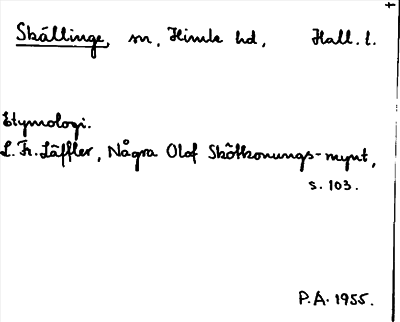 Skällinge, m, Himle hd, Hall. l.
Etymologi.
L. Fr. Läffler, Några Olof Skötkonungs-mynt,
s. 103.
P.A. 1955.